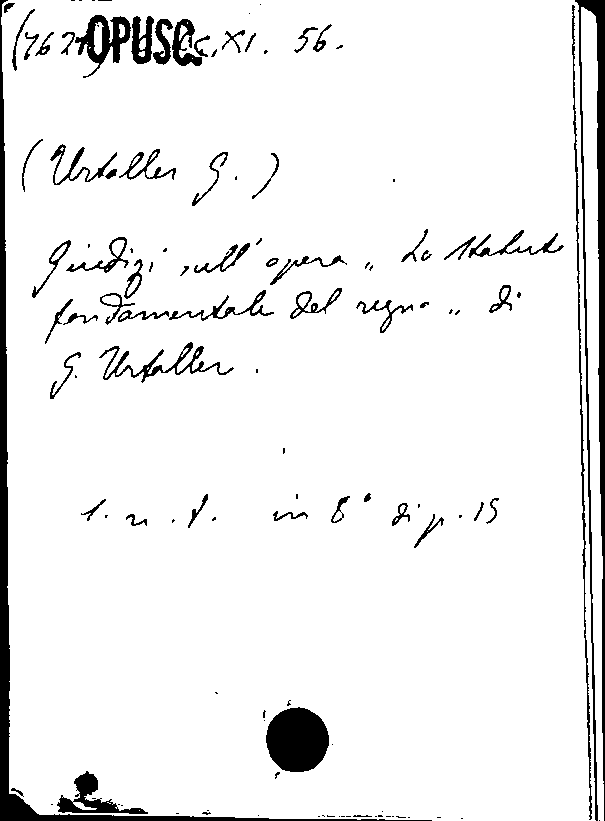 (7621) OPUSC. XI. 56.
(Urtoller G.)
Giudizi sull'opera „ Lo Statuto
fondamentale del regno „ di
G. Urtoller.
s. n. t. in 8° di p. 15